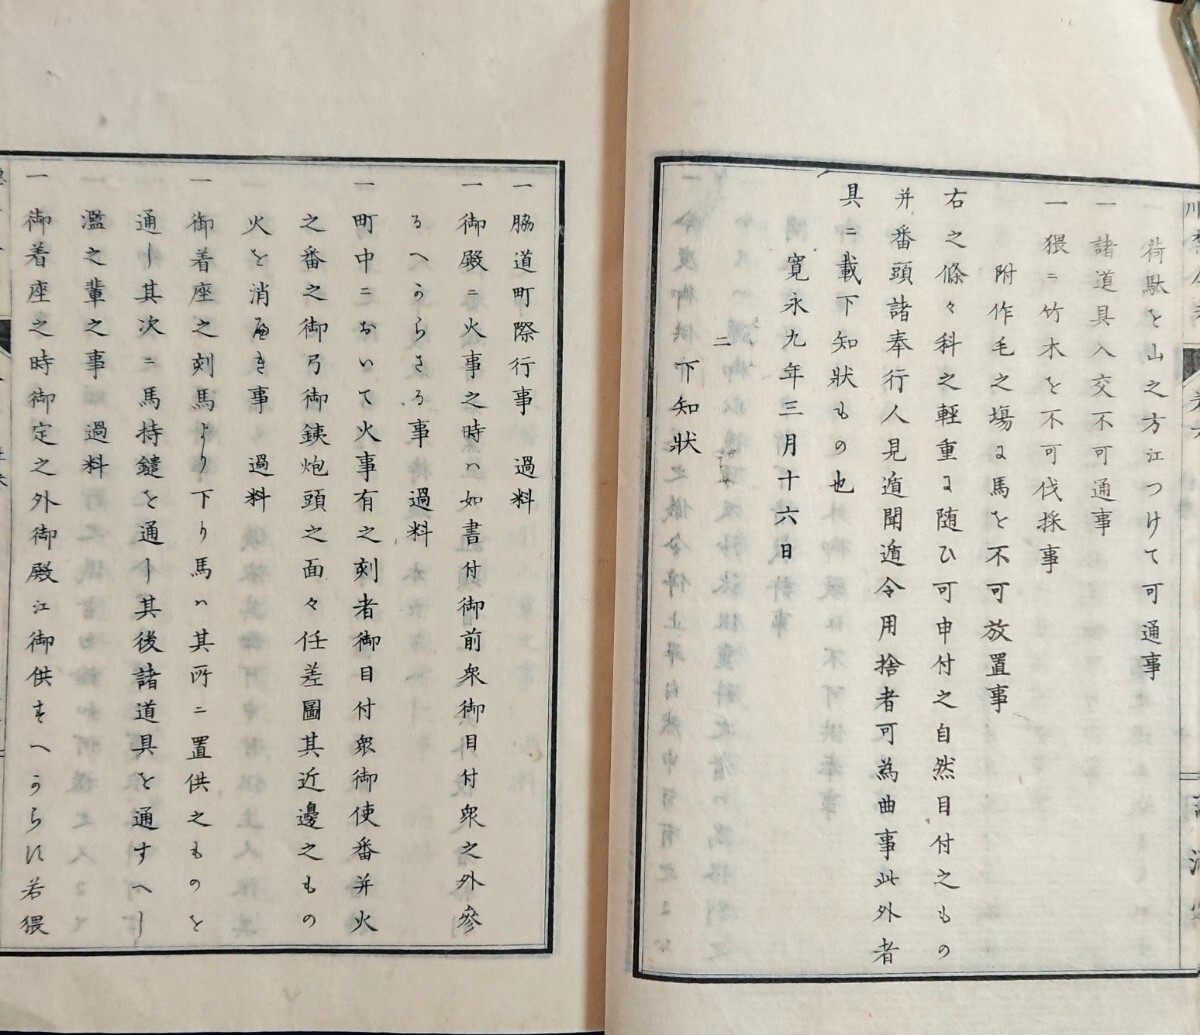 一荷駄を山之方江つけて可通事
一諸道具入交不可通事
一猥ニ竹木を不可伐採事
附作毛之場に馬を不可放置事
右之條々科之軽重に随ひ可申付之自然目付之もの
并番頭諸奉行人見遁聞遁令用捨者可為曲事此外者
具ニ載下知狀もの也
寛永九年三月十六日
二
下知狀
一脇道町際行事 過料
一御殿ニ火事之時ハ如書付御前衆御目付衆之外參
るへからさる事 過料
一町中ニおいて火事有之刻者御目付衆御使番并火
之番之御弓御銕炮頭之面々任差圖其近邊之もの
火を消へき事 過料
一御着座之刻馬より下り馬ハ其所ニ置供之ものを
通し其次ニ馬持鑓を通し其後諸道具を通すへし
濫之輩之事過料
一御着座之時御定之外御殿江御供すへからす若猥